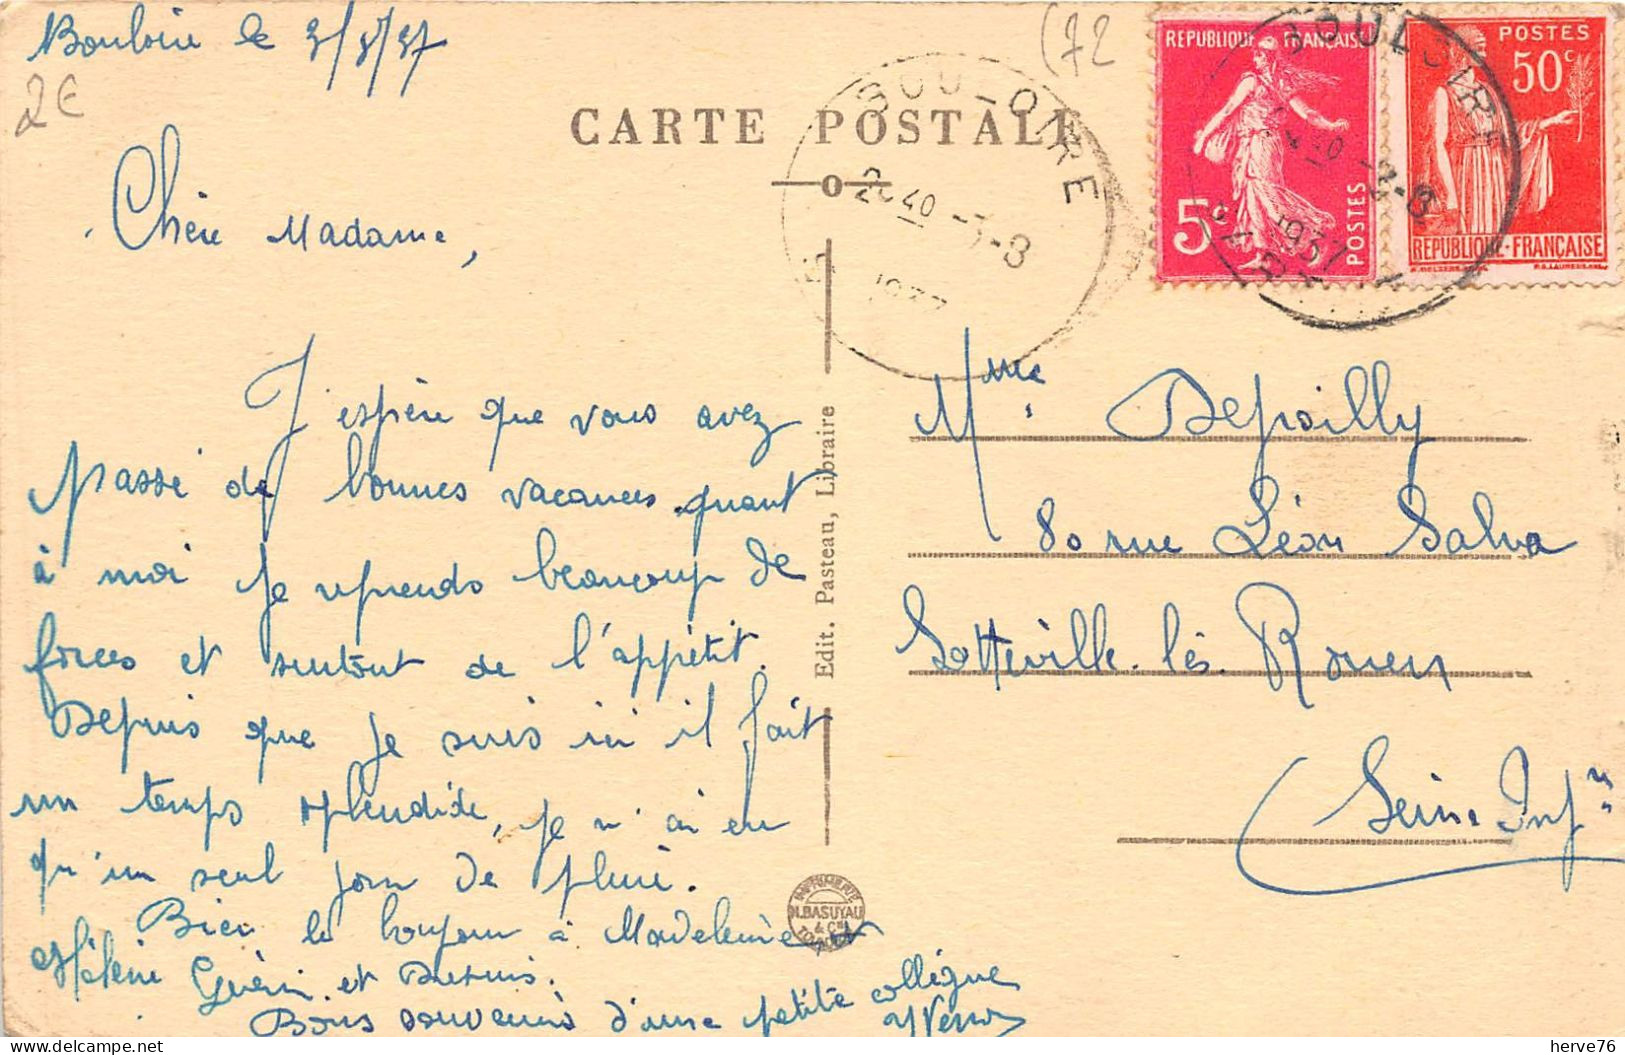 Bouloire le 3/8/37
2€
(72
CARTE POSTALE
REPUBLIQUE FRANÇAISE
5c
POSTES
POSTES
50c
REPUBLIQUE-FRANÇAISE
BOULOIRE
20 40 -3-8
1937
BOULOIRE
-3-8
1937
Chère Madame,
J'espère que vous avez
passé de bonnes vacances quant
à moi je reprends beaucoup de
forces et surtout de l'appétit.
Depuis que je suis ici il fait
un temps splendide, je n'ai eu
qu'un seul jour de pluie.
Bien le bonjour à Madeleine et
Hélène Guérin et
Bons souvenirs d'une petite collègue
Edit. Pasteau, Libraire
IMPRIMERIE
BASUYAU
& Cie
TOULOUSE
Mme Depoilly
80 rue Léon Salva
Sotteville-lès-Rouen
Seine Infre
herve76
www.delcampe.net